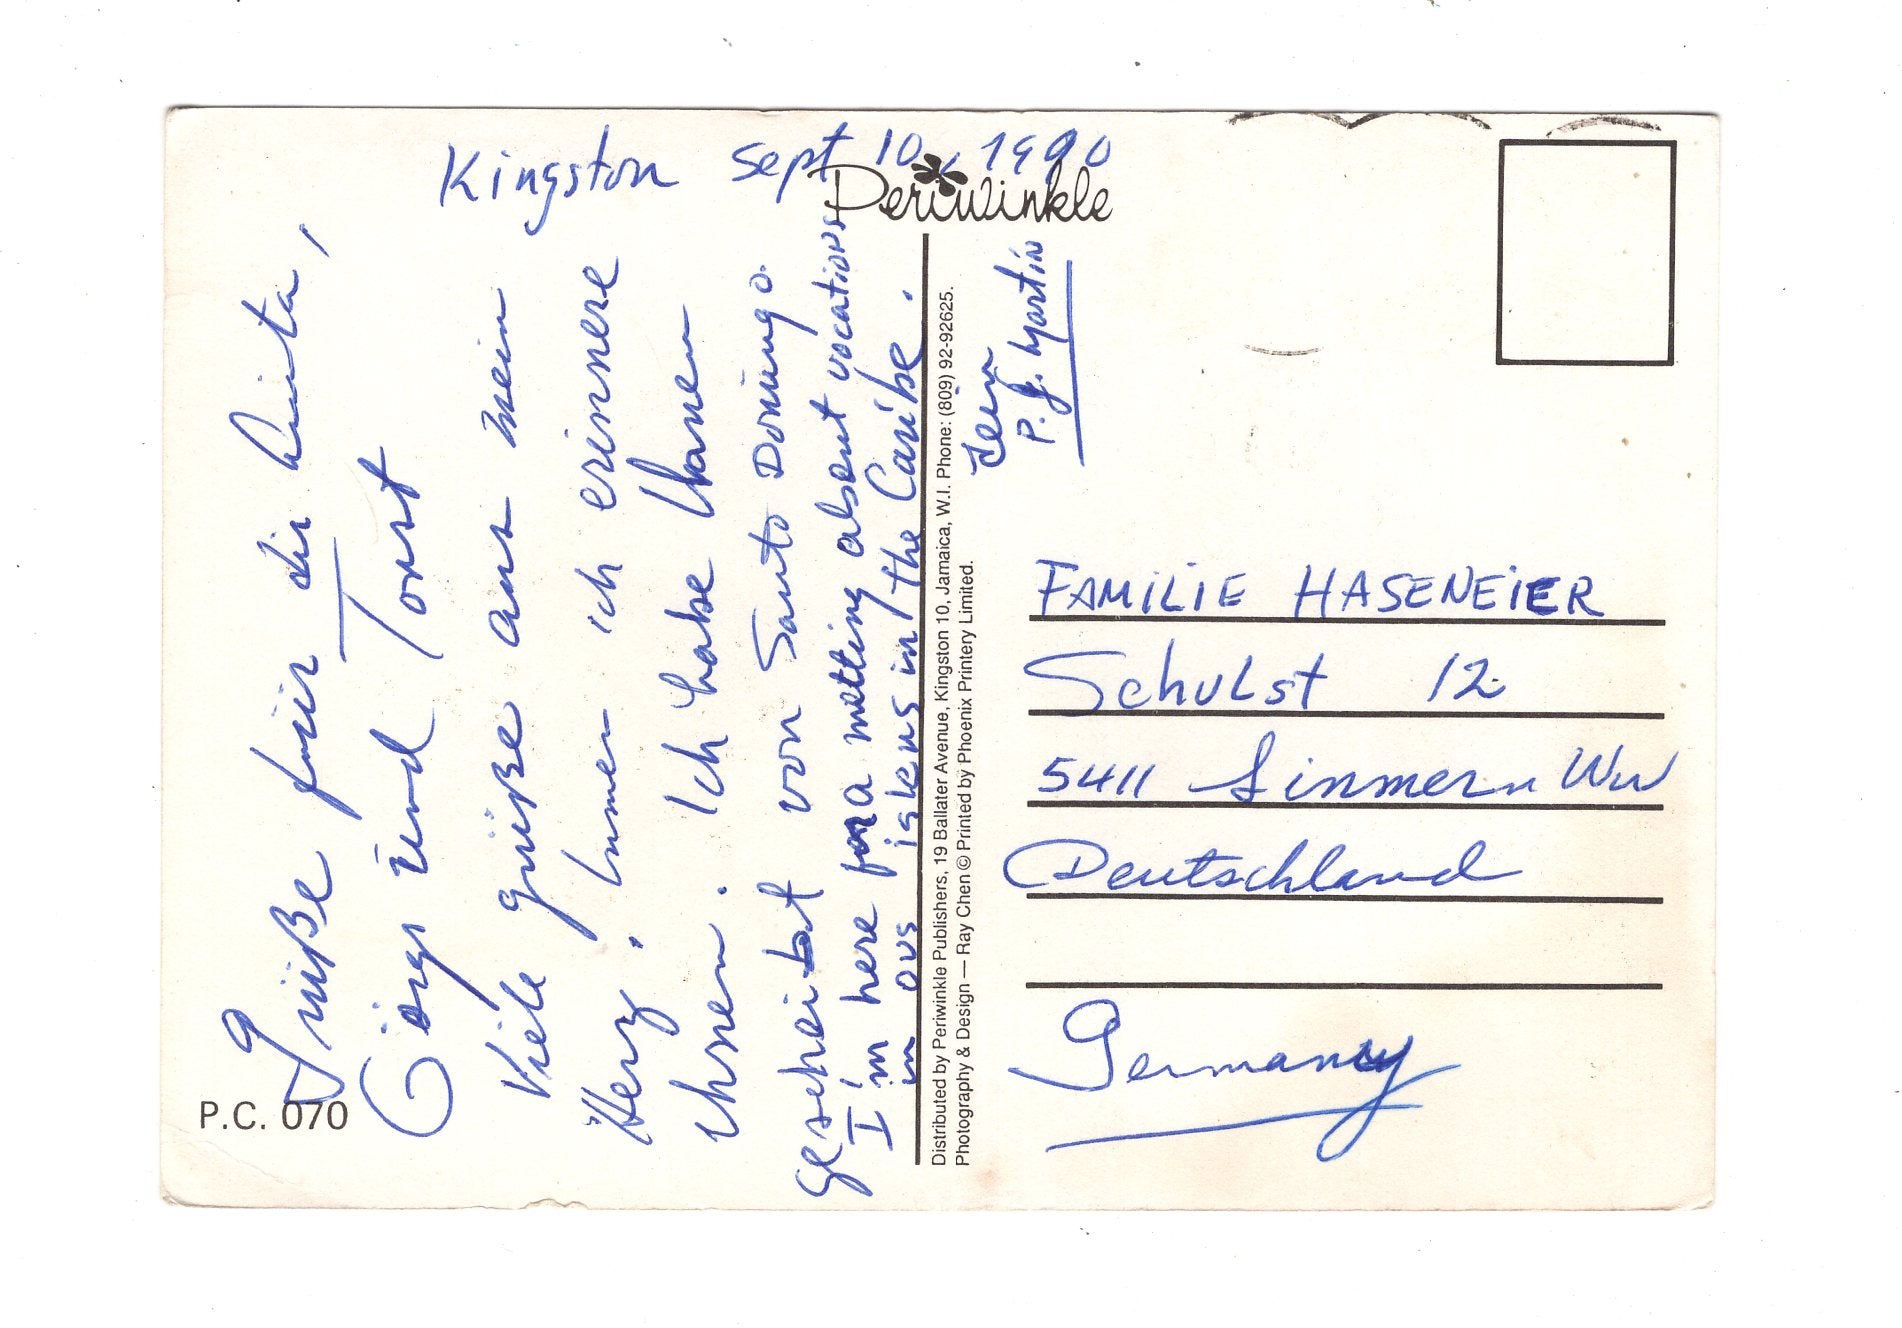 Kingston Sept 10, 1990
Periwinkle
Grüße für die
Görgi und Torst
Viele grüße aus mein
Herz. Immer ich erinnere
Ihnen. Ich habe Ihnen
gescheibt von Santo Domingo.
I'm here for a metting absent vocations
in ous iskens in the Caribe.
P.J. Martín
Distributed by Periwinkle Publishers, 19 Ballater Avenue, Kingston 10, Jamaica, W.I. Phone: (809) 92-92625.
Photography & Design — Ray Chen © Printed by Phoenix Printery Limited.
P.C. 070
FAMILIE HASENEIER
Schulst 12
5411 Simmern WW
Deutschland
Germany